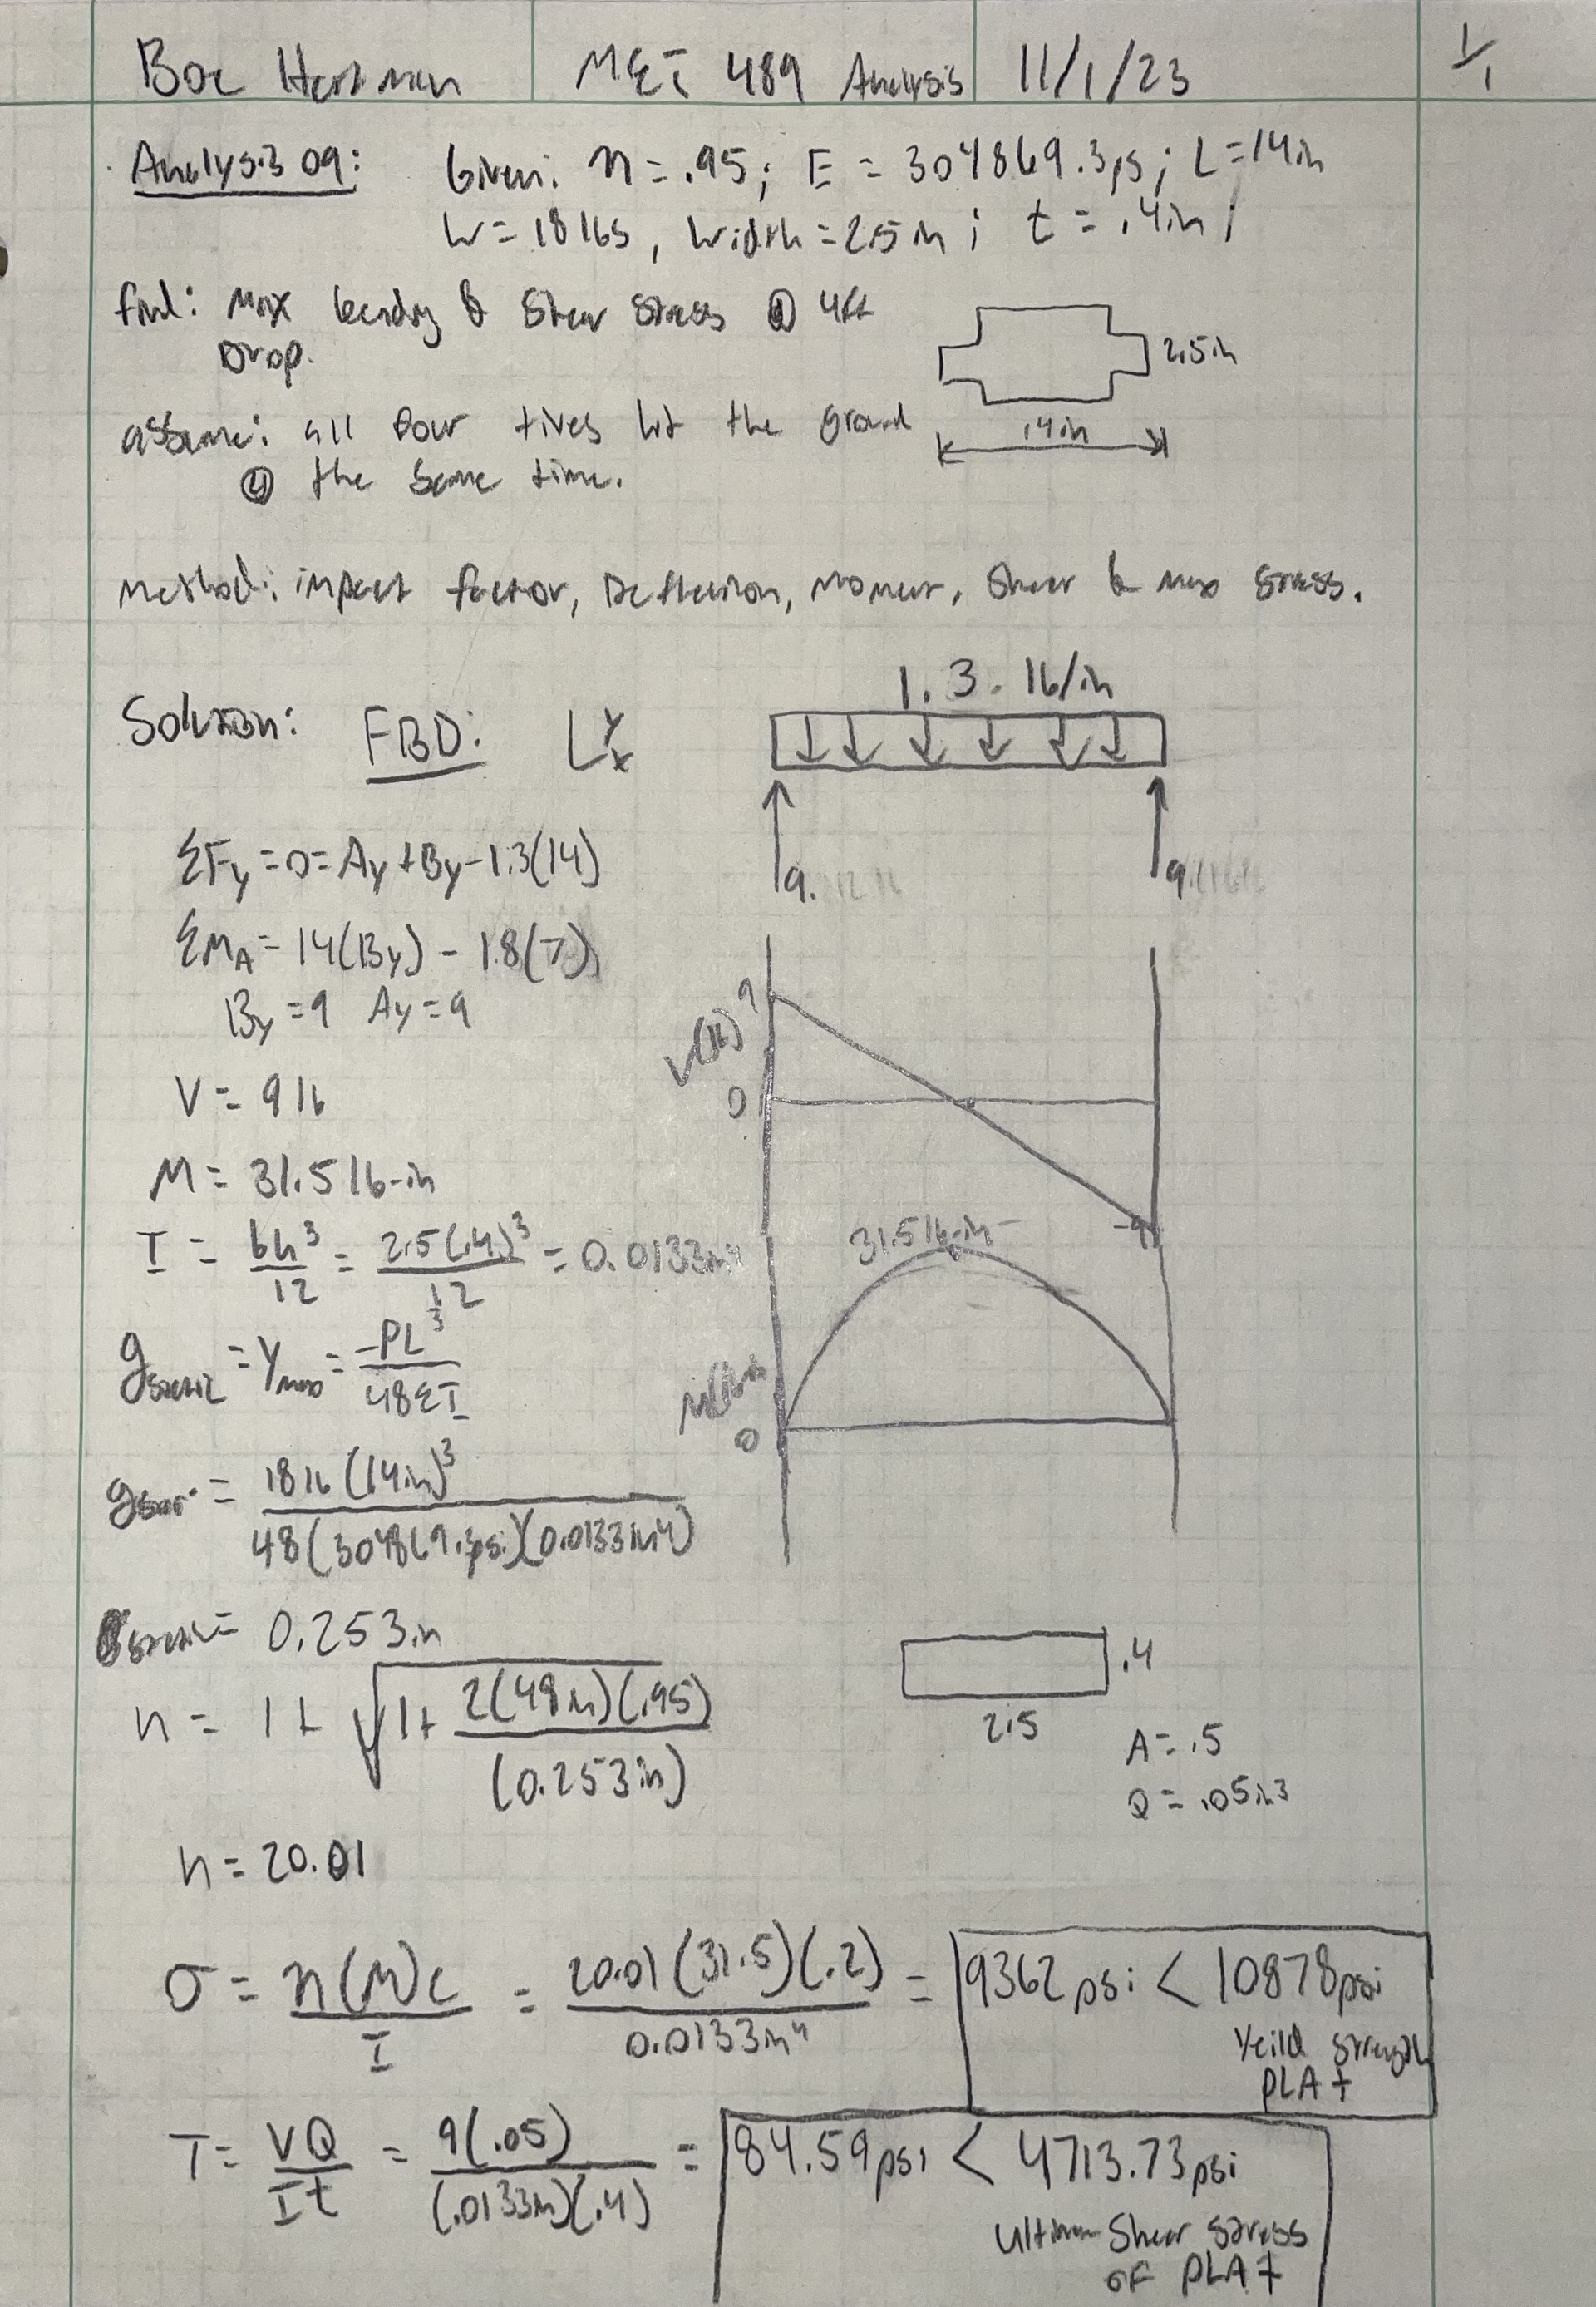 Boe Hartman MET 489 Analysis 11/1/23 1/1
Analysis 09: Given: n = .95; E = 304869.3psi; L=14in
W= 18 lbs, Width = 2.5in; t = .4in;
find: Max bending & Shear Stress @ 4ft
Drop.
2.5in
assume: all four tires hit the ground
14in
@ the same time.
Method: impact factor, Deflection, moment, Shear & max stress.
1.3 lb/in
Solution: FBD: y x
ΣFy =0= Ay + By - 1.3(14)
9. 9.
ΣMA = 14(By) - 18(7)
By = 9 Ay = 9
9
V(lb)
V = 9 lb
0
M = 31.5 lb-in
-9
I = bh³/12 = 2.5(.4)³/12 = 0.0133in⁴
31.5 lb-in
static = Ymax = -PL³/48EI
0
= 18 lb (14in)³/48(304869.3psi)(0.0133in⁴)
static = 0.253in
.4
n = 1 + √1+ 2(48in)(.95)/(0.253in)
2.5
A = .5
Q = .05in3
n = 20.01
σ = n(M)c/I = 20.01(31.5)(.2)/0.0133in⁴ = 9362 psi < 10878psi
Yeild Strength
PLA +
T = VQ/It = 9(.05)/(.0133in)(.4) = 84.59psi < 4713.73psi
Shear Stress
OF PLA +